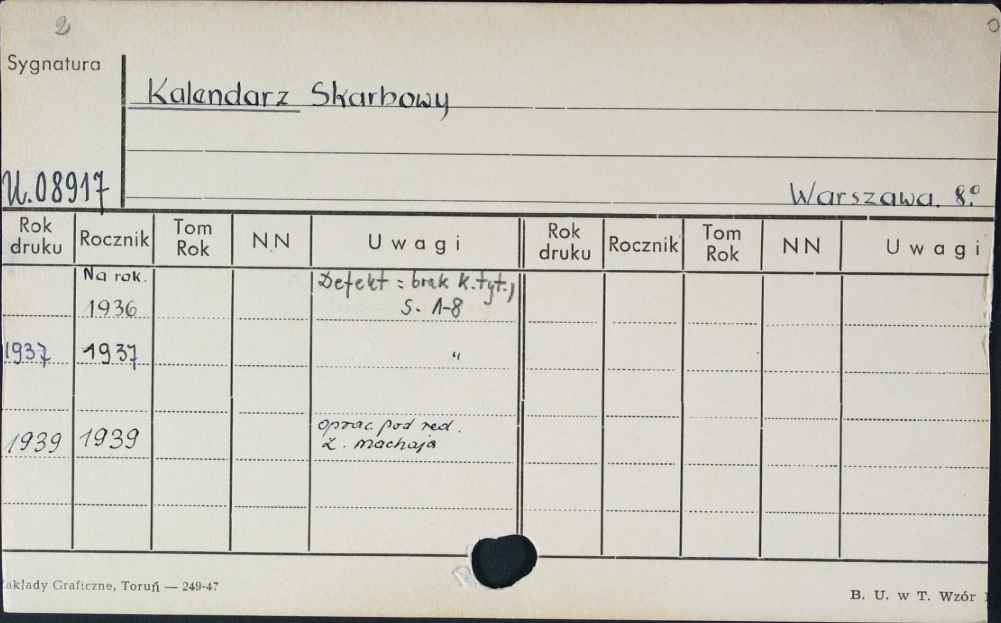 2
Sygnatura
Kalendarz Skarbowy
U.08917
Warszawa. 8.º
Rok druku Rocznik Tom Rok NN Uwagi Rok druku Rocznik Tom Rok NN Uwagi
Na rok. Defekt : brak k.tyt.,
1936 S. 1-8
1937 1937 "
oprac. pod red.
1939 1939 Z. Machaja
akłady Graficzne, Toruń — 249-47
B. U. w T. Wzór